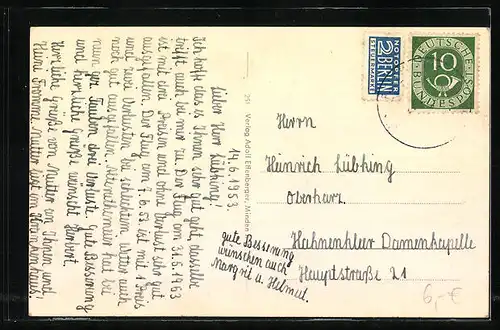 14.6.1953.
Lieber Herr Lübking!
Ich hoffe das es Ihnen sehr gut geht, dasselbe
trifft auch bei mir zu. Der Flug am 31.5.1953
ist mit drei Preisen und ohne Verlust sehr gut
ausgefallen. Der Flug vom 7.6.53 ist mit 1 Preis
und zwei Verlusten bei schlechtem Wetter auch
noch gut ausgefallen. hat bei
neun Tauben drei Verluste. Gute Besserung
und herzliche Grüße wünscht Herbert.
Herzliche Grüße von Mutter an Ihnen und
Mutter liegt im Krankenhaus!
gute Besserung
wünschen auch
Margrit u. Helmut.
250 Verlag Adolf Effenberger, Minden
NOTOPFER
2 BERLIN
STEUERMARKE
DEUTSCHE
10
BUNDESPOST
Herrn
Heinrich Lübking
Oberharz
Hahnenklee Damenkapelle
Hauptstraße 21
6,-€